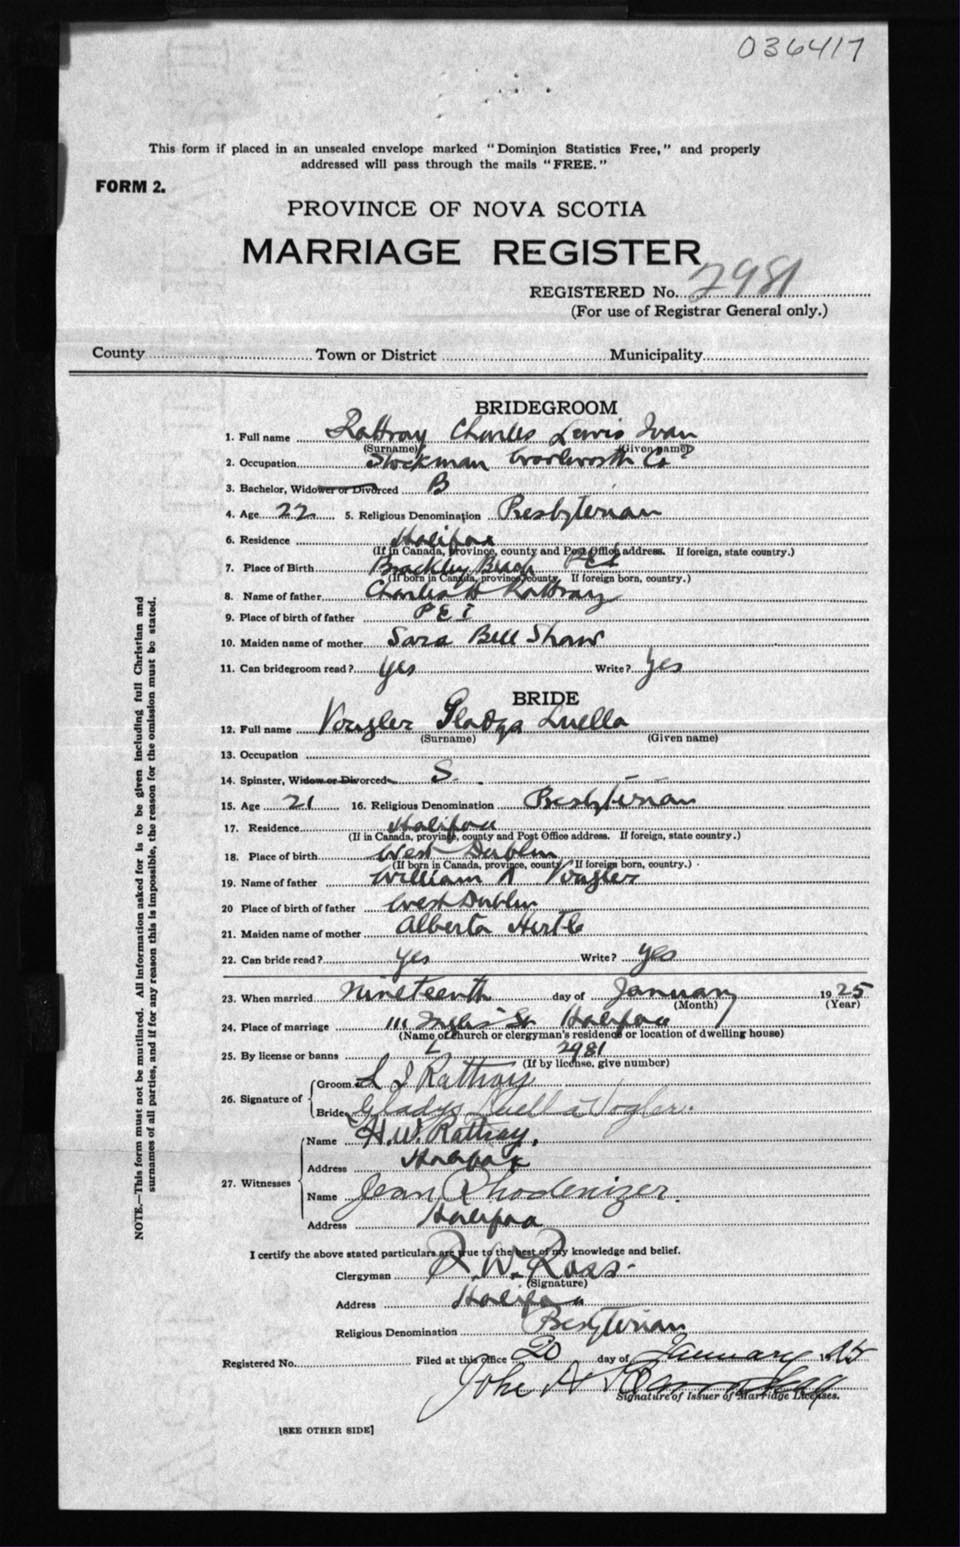 036417
This form if placed in an unsealed envelope marked "Dominion Statistics Free," and properly
addressed will pass through the mails "FREE."
FORM 2.
PROVINCE OF NOVA SCOTIA
MARRIAGE REGISTER
REGISTERED No. 2981
(For use of Registrar General only.)
County Town or District Municipality
BRIDEGROOM
1. Full name Rattray Charles Lewis Ivan
(Surname) (Given name)
2. Occupation Stockman Woolworth Co
3. Bachelor, Widower or Divorced B
4. Age 22 5. Religious Denomination Presbyterian
6. Residence Halifax
(If in Canada, province, county and Post Office address. If foreign, state country.)
7. Place of Birth Brackley Beach PEI
(If born in Canada, province, county. If foreign born, country.)
8. Name of father Charles H Rattray
9. Place of birth of father PEI
10. Maiden name of mother Sara Bell Shaw
11. Can bridegroom read? yes Write? yes
BRIDE
12. Full name Vougler Gladys Luella
(Surname) (Given name)
13. Occupation
14. Spinster, Widow or Divorced S
15. Age 21 16. Religious Denomination Presbyterian
17. Residence Halifax
(If in Canada, province, county and Post Office address. If foreign, state country.)
18. Place of birth West Dublin
(If born in Canada, province, county. If foreign born, country.)
19. Name of father William A Vougler
20 Place of birth of father West Dublin
21. Maiden name of mother Alberta Hirtle
22. Can bride read? yes Write? yes
23. When married nineteenth day of January 1925
(Month) (Year)
24. Place of marriage 111 Inglis St Halifax
(Name of church or clergyman's residence or location of dwelling house)
25. By license or banns L 2981
(If by license, give number)
26. Signature of Groom L I Rattray
Bride Gladys Luella Vogler.
27. Witnesses Name H.W. Rattray.
Address Halifax
Name Jean Rhodenizer.
Address Halifax
I certify the above stated particulars are true to the best of my knowledge and belief.
Clergyman R.W. Ross.
(Signature)
Address Halifax
Religious Denomination Presbyterian
Registered No. Filed at this office 20 day of January 1925
John A
Signature of Issuer of Marriage Licenses.
[SEE OTHER SIDE]
NOTE.—This form must not be mutilated. All information asked for is to be given including full Christian and
surnames of all parties, and if for any reason this is impossible, the reason for the omission must be stated.